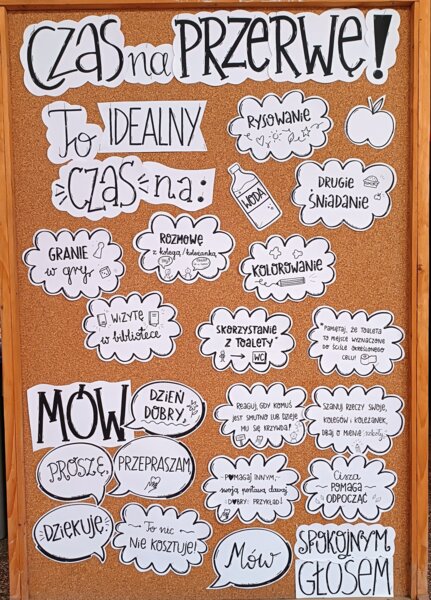 CZAS na PRZERWĘ!
To IDEALNY
CZAS na:
RYSOWANIE
WODA
DRUGIE
ŚNIADANIE
GRANIE
w gry
ROZMOWĘ
z kolegą/koleżanką
KOLOROWANIE
WIZYTĘ
w bibliotece
SKORZYSTANIE
Z TOALETY
WC
PAMIĘTAJ, ŻE TOALETA
TO MIEJSCE WYZNACZONE
DO ŚCIŚLE OKREŚLONEGO
CELU!
MÓW!
DZIEŃ
DOBRY,
PROSZĘ,
PRZEPRASZAM,
DZIĘKUJĘ.
To nic
NIE KOSZTUJE!
REAGUJ, GDY KOMUŚ
JEST SMUTNO LUB DZIEJE
MU SIĘ KRZYWDA!
SZANUJ RZECZY SWOJE,
KOLEGÓW I KOLEŻANEK,
DBAJ O MIENIE szkoły!
POMAGAJ INNYM,
swoją postawą dawaj
DOBRY PRZYKŁAD!
Cisza
POMAGA
ODPOCZĄĆ
Mów
SPOKOJNYM
GŁOSEM